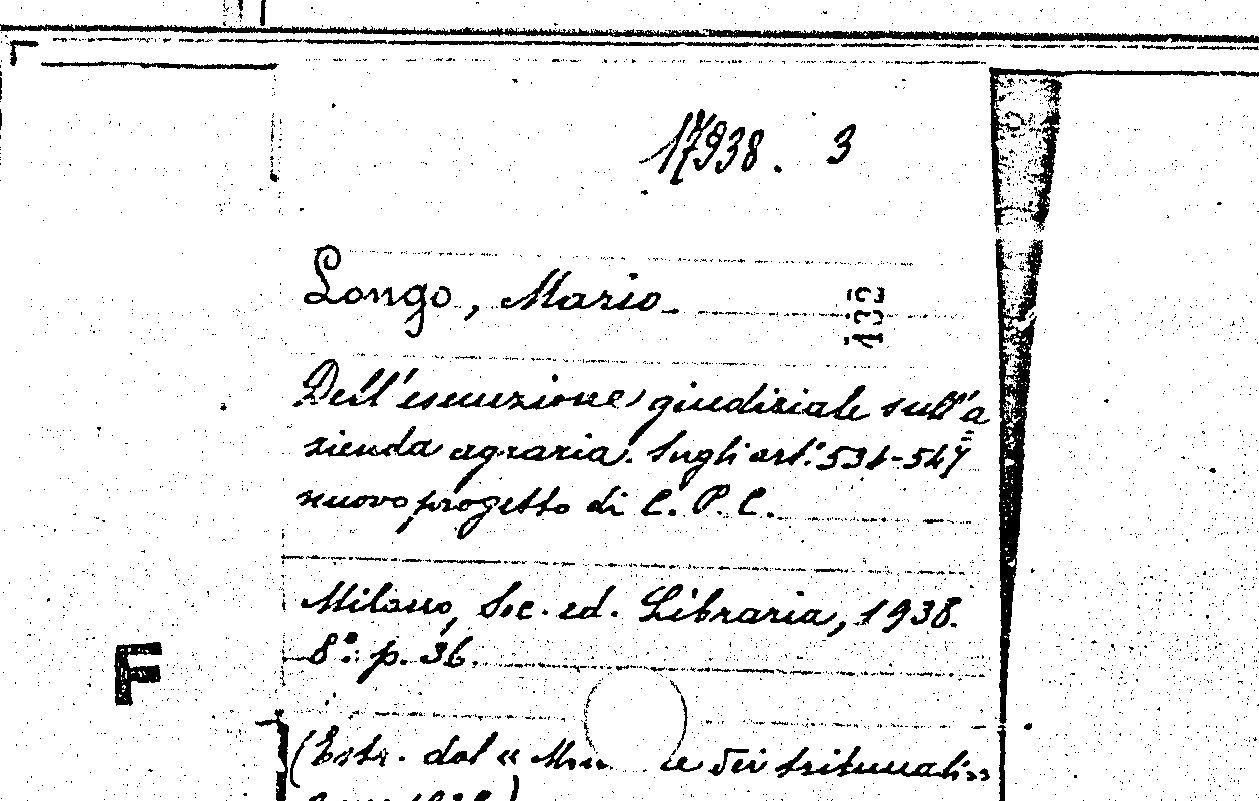 17938. 3
Longo, Mario.
132
Dell'esecuzione giudiziale sull'a
zienda agraria. Sugli art. 531-547
nuovo progetto di C. P. C.
Milano, Soc. ed. Libraria, 1938.
8°. p. 36.
F
(Estr. dal « Mon e dei tribunali »
1938)